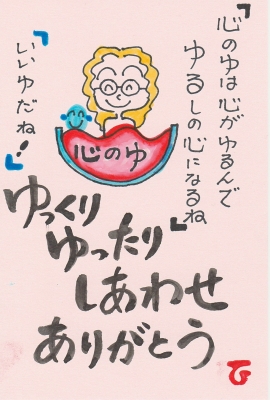 「心のゆは心がゆるんで
ゆるしの心になるね
いいゆだね！」
心のゆ
ゆっくり
ゆったり
しあわせ
ありがとう